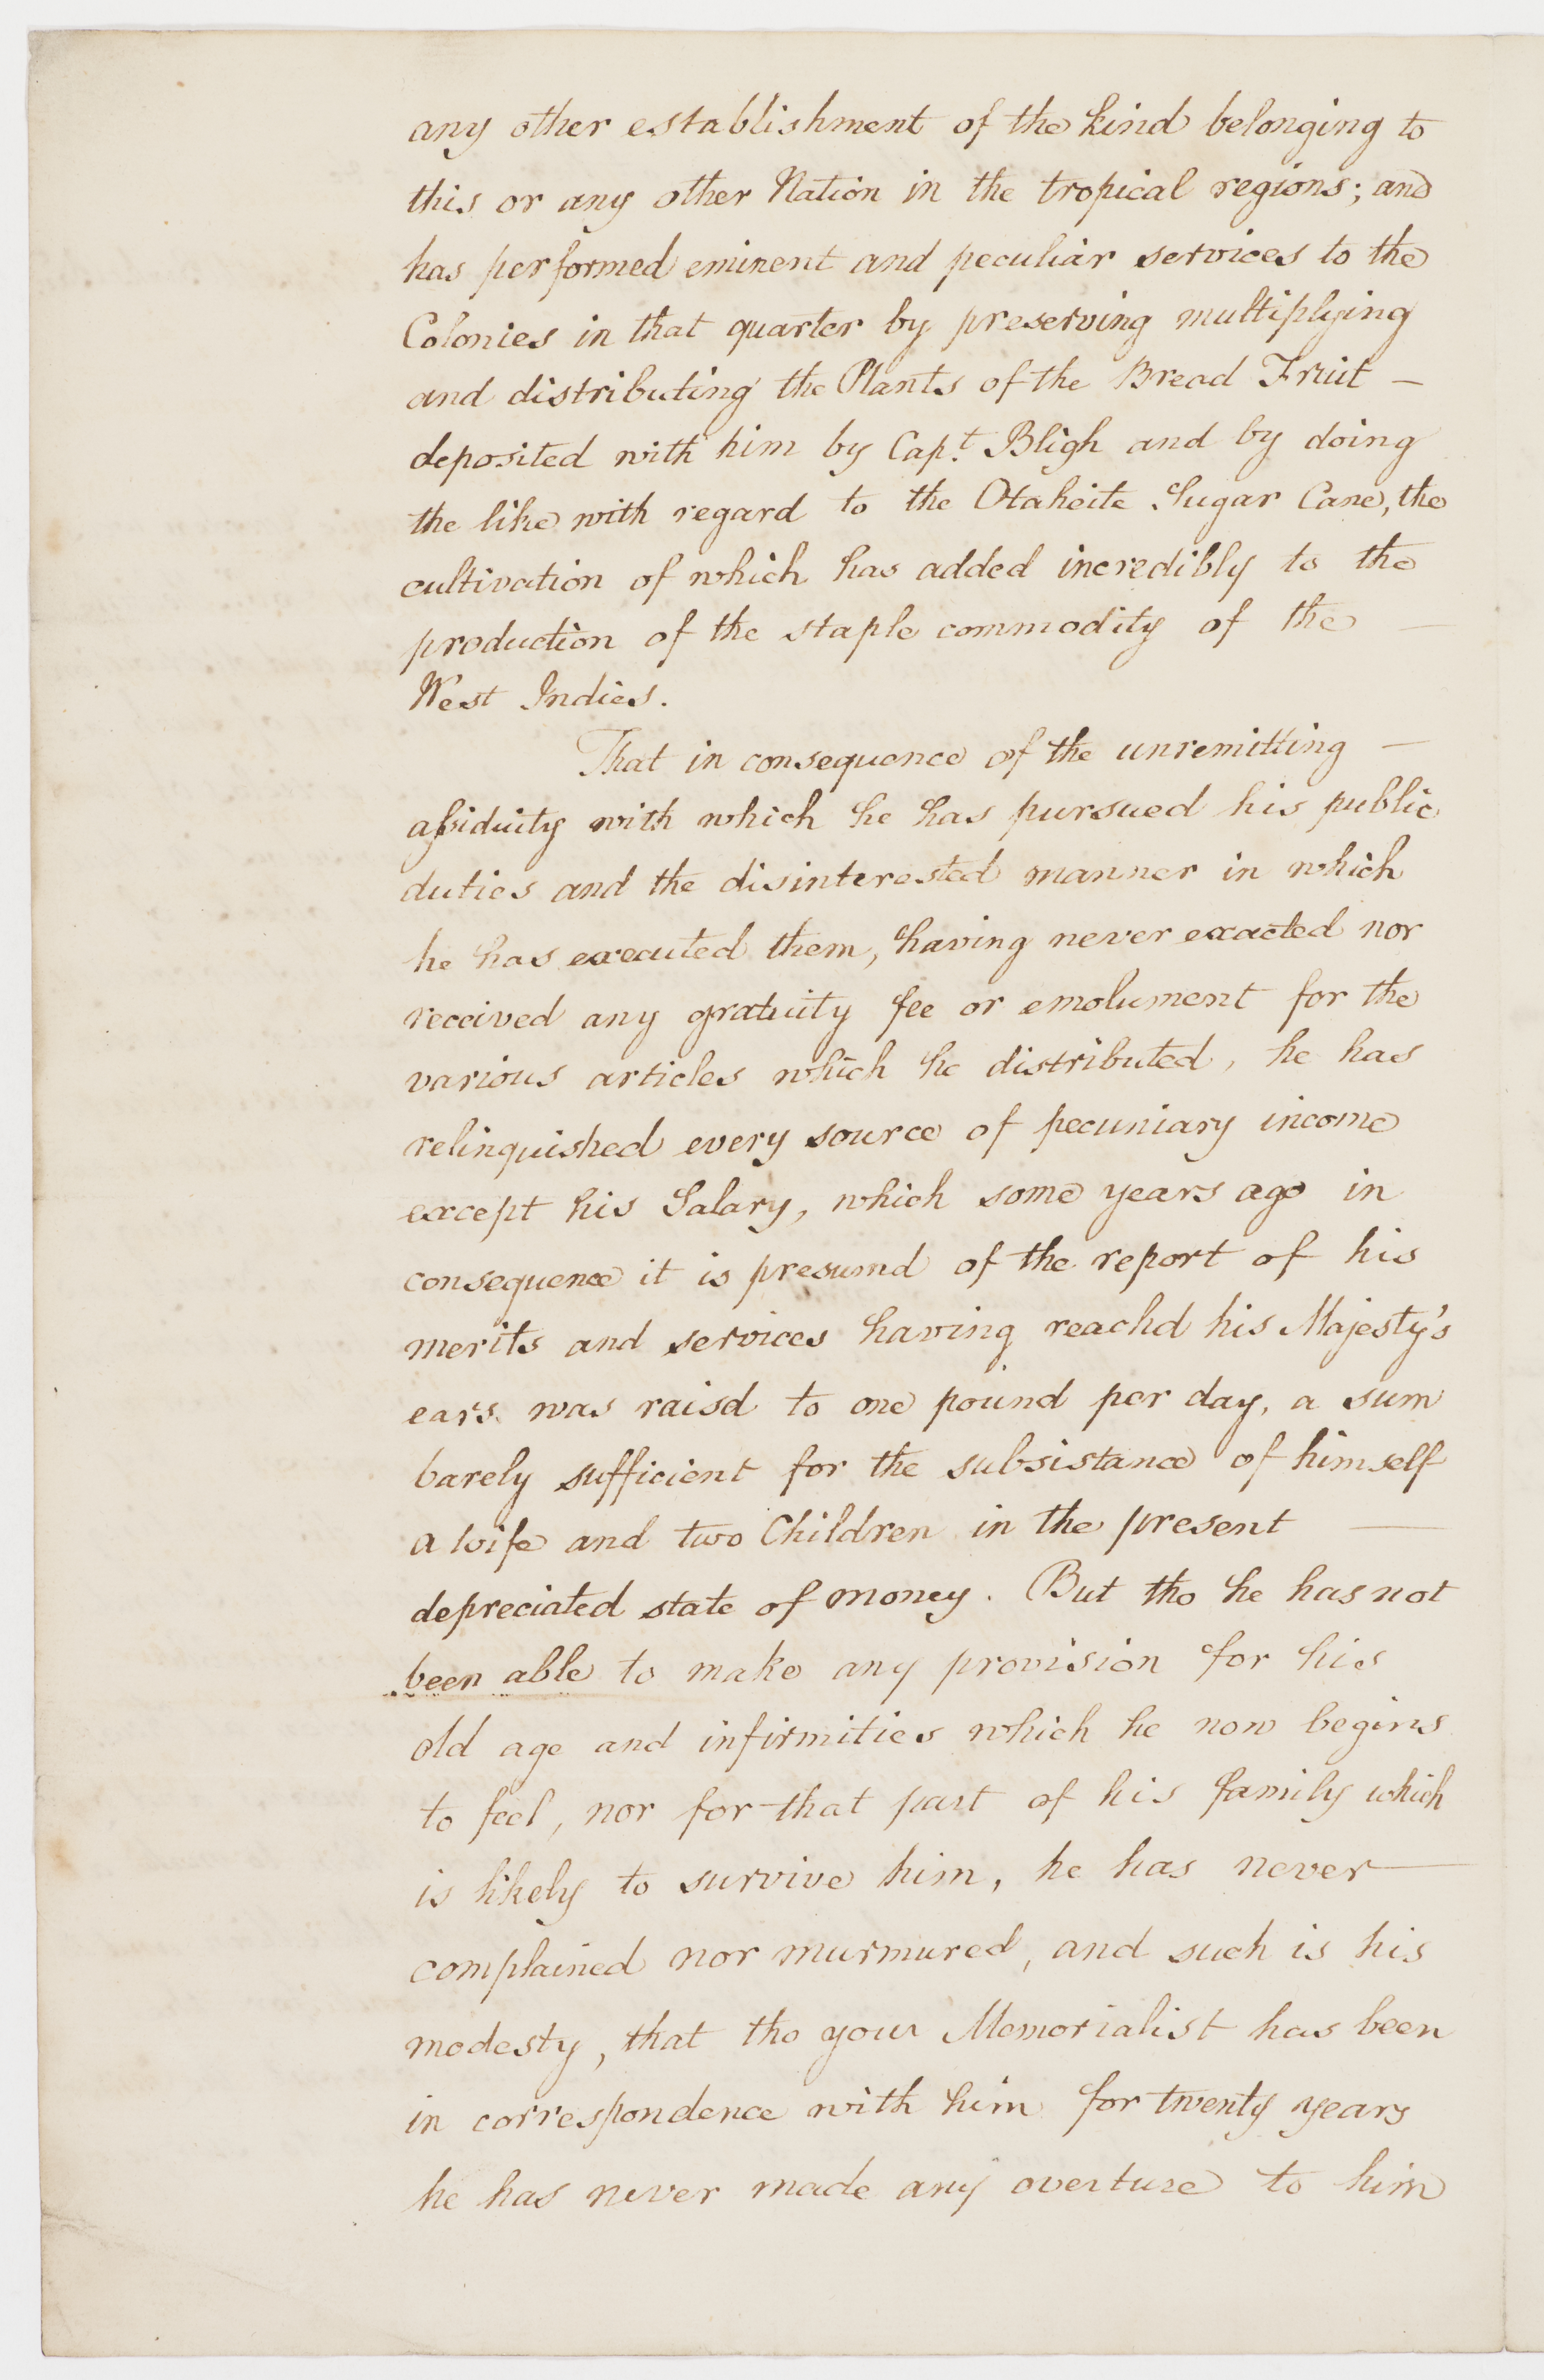 any other establishment of the kind belonging to
this or any other Nation in the tropical regions; and
has performed eminent and peculiar services to the
Colonies in that quarter by preserving multiplying
and distributing the Plants of the Bread Fruit —
deposited with him by Capt. Bligh and by doing
the like with regard to the Otaheite Sugar Cane, the
cultivation of which has added incredibly to the
production of the staple commodity of the —
West Indies.
That in consequence of the unremitting —
assiduity with which he has pursued his public
duties and the disinterested manner in which
he has executed them, having never exacted nor
received any gratuity fee or emolument for the
various articles which he distributed, he has
relinquished every source of pecuniary income
except his Salary, which some years ago in
consequence it is presumd of the report of his
merits and services having reachd his Majesty's
ears was raisd to one pound per day, a sum
barely sufficient for the subsistance of himself
a wife and two Children in the present —
depreciated state of money. But tho he has not
been able to make any provision for his
old age and infirmities which he now begins
to feel, nor for that part of his family which
is likely to survive him, he has never —
complained nor murmured, and such is his
modesty, that tho your Memorialist has been
in correspondence with him for twenty years
he has never made any overture to him